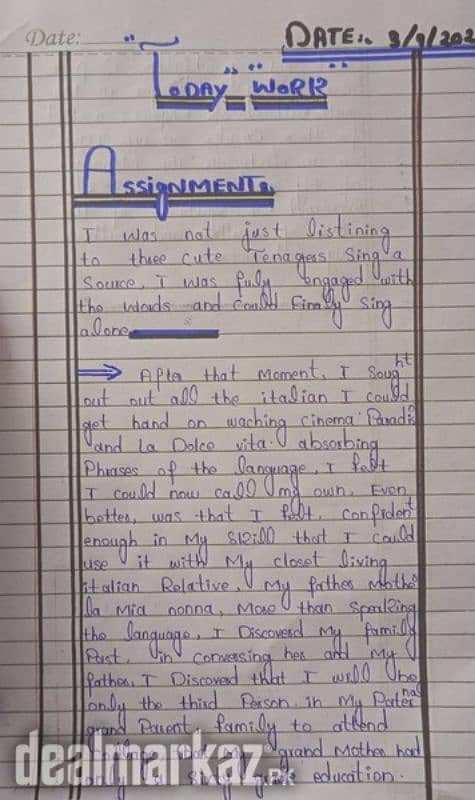 Date:
DATE:. 3/9/202
TODAY WORK
ASSIGNMENT:
I was not just listining
to three cute Tenagers Sing a
Source, I was fuly engaged with
the words and could Finally Sing
alone
After that Moment, I Sought
out out all the italian I could
get hand on waching cinema Paradis
and la Dolce vita. absorbing
Phrases of the language, I felt
I could now call my own. Even
better, was that I felt confident
enough in My skill that I could
use it with My closet living
italian Relative, My father Mothe
la Mia nonna, More than Speaking
the language, I Discoverd My family
Past, in conversing her and My
father, I Discoverd that I will be
only the third Person in My Paternal
grand Parent family to attend
that My grand Mother had
only education.
dealmarkaz.pk